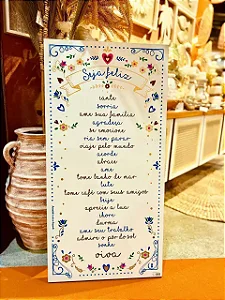 Seja feliz
cante
sorria
ame sua família
agradeça
se emocione
ria sem parar
viaje pelo mundo
acorde
abrace
ame
tome banho de mar
lute
tome café com seus amigos
beije
aprecie a lua
chore
durma
ame seu trabalho
admire o pôr do sol
sonhe
viva